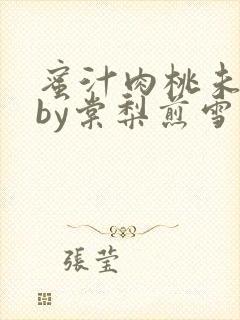 蜜汁肉桃未
by棠梨煎雪
張莹